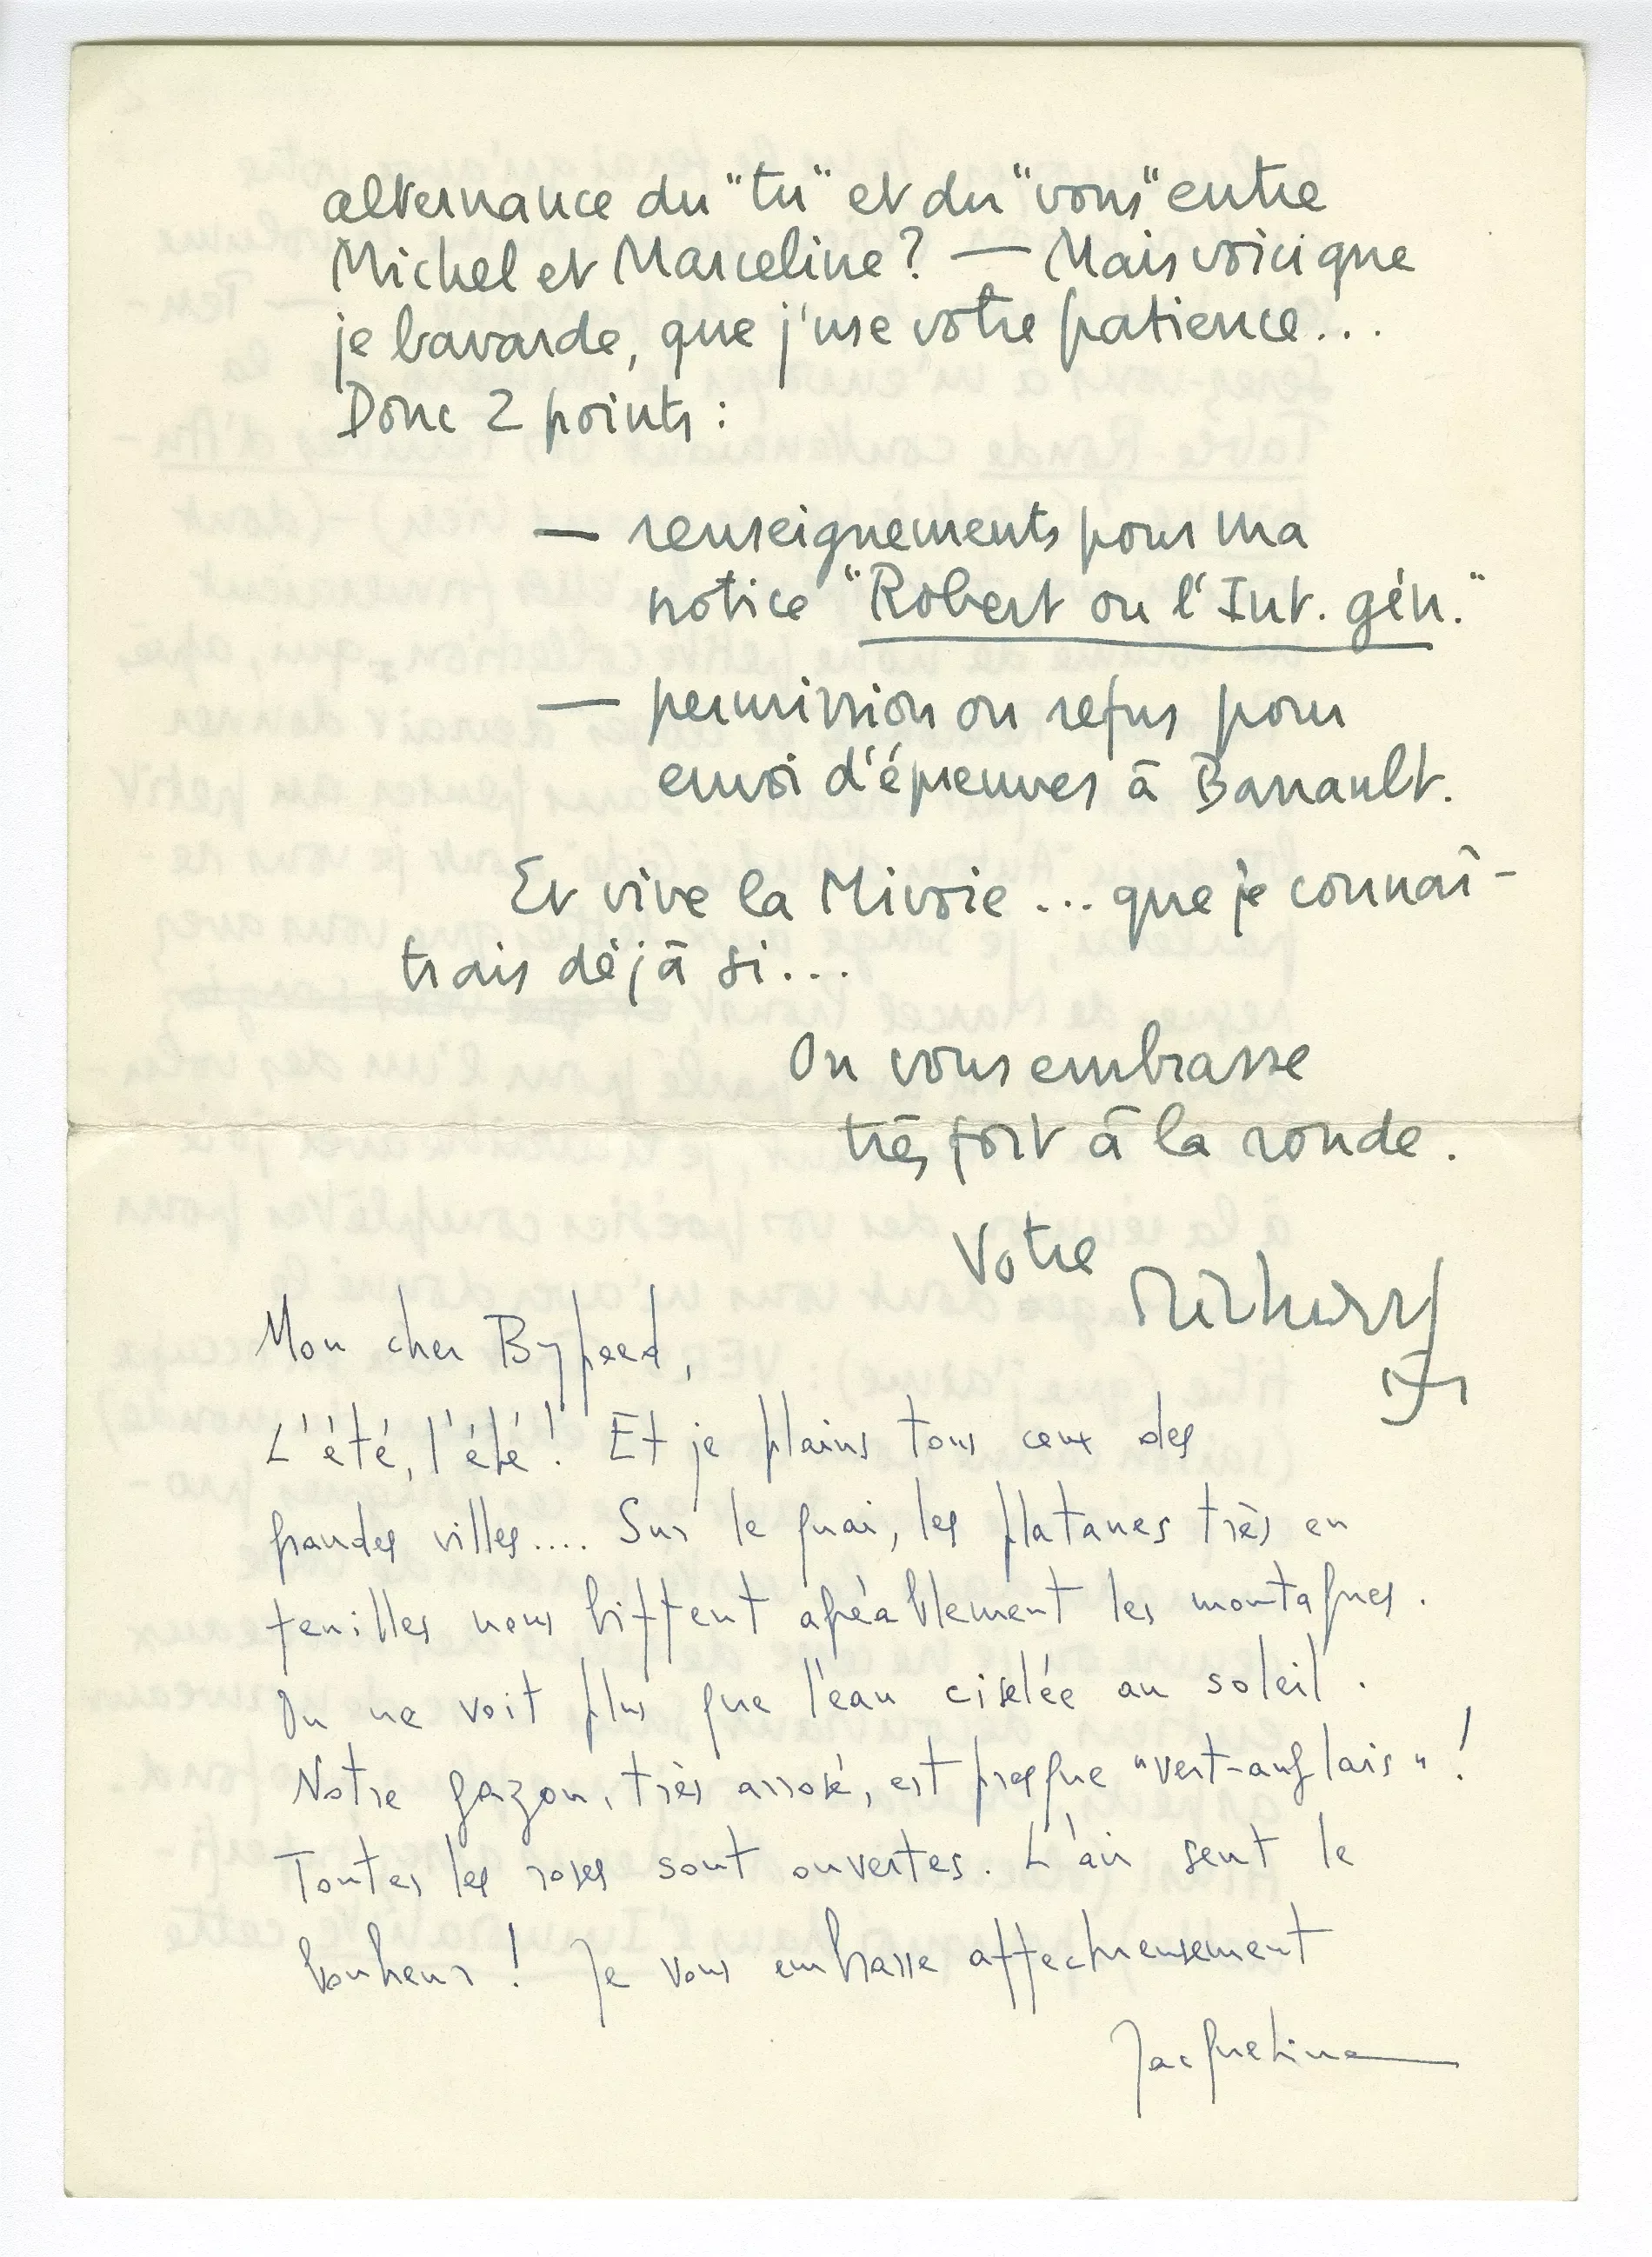 alternance du "tu" et du "vous" entre
Michel et Marceline ? — Mais voici que
je bavarde, que j'use votre patience...
Donc 2 points :
— renseignements pour ma
notice "Robert ou l'Int. gén."
— permission ou refus pour
envoi d'épreuves à Barrault.
Et vive la Mivoie ... que je connaî-
trais déjà si...
On vous embrasse
très fort à la ronde.
Votre
Mon cher Bypeed,
L'été, l'été ! Et je plains tous ceux des
grandes villes.... Sur le quai, les platanes très en
feuilles nous biffent agréablement les montagnes.
On ne voit plus que l'eau ciselée au soleil.
Notre gazon, très arrosé, est presque "vert-anglais" !
Toutes les roses sont ouvertes. L'air sent le
bonheur ! Je vous embrasse affectueusement
Jacqueline